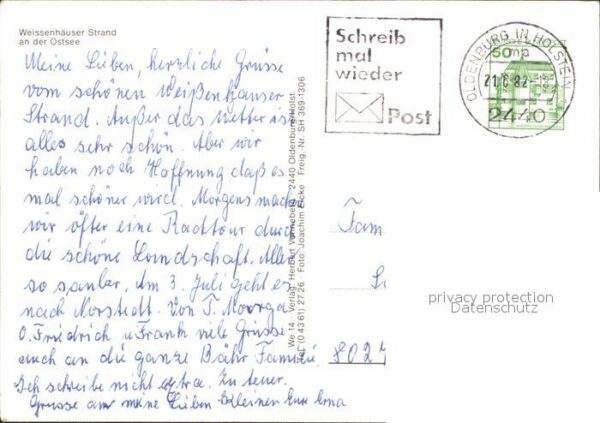 Weissenhäuser Strand
an der Ostsee
Meine Lieben, herzliche Grüsse
vom schönen Weißenhauser
Strand. Außer das Wetter ist
alles sehr schön. Aber wir
haben noch Hoffnung daß es
mal schöner wird. Morgens mach
wir öfter eine Radtour durch
die schöne Landschaft. Alles
so sauber. Am 3. Juli geht es
nach Norstedt. Von T.
O. Friedrich u Frank viele Grüsse
auch an die ganze Bähr Familie.
Ich schreibe nicht extra. Zu teuer.
Grüsse an meine Lieben Kleinen Eure Erna
We 14 - Verlag: Herbert 2440 Oldenburg/Holst.
Tel. (0 43 61) 27 26 · Foto: Joachim Eicke · Freig.-Nr. SH 369-1306
Schreib
mal
wieder
Post
OLDENBURG IN HOLSTEIN
21.6.82
2440
50
Fam
802
privacy protection
Datenschutz